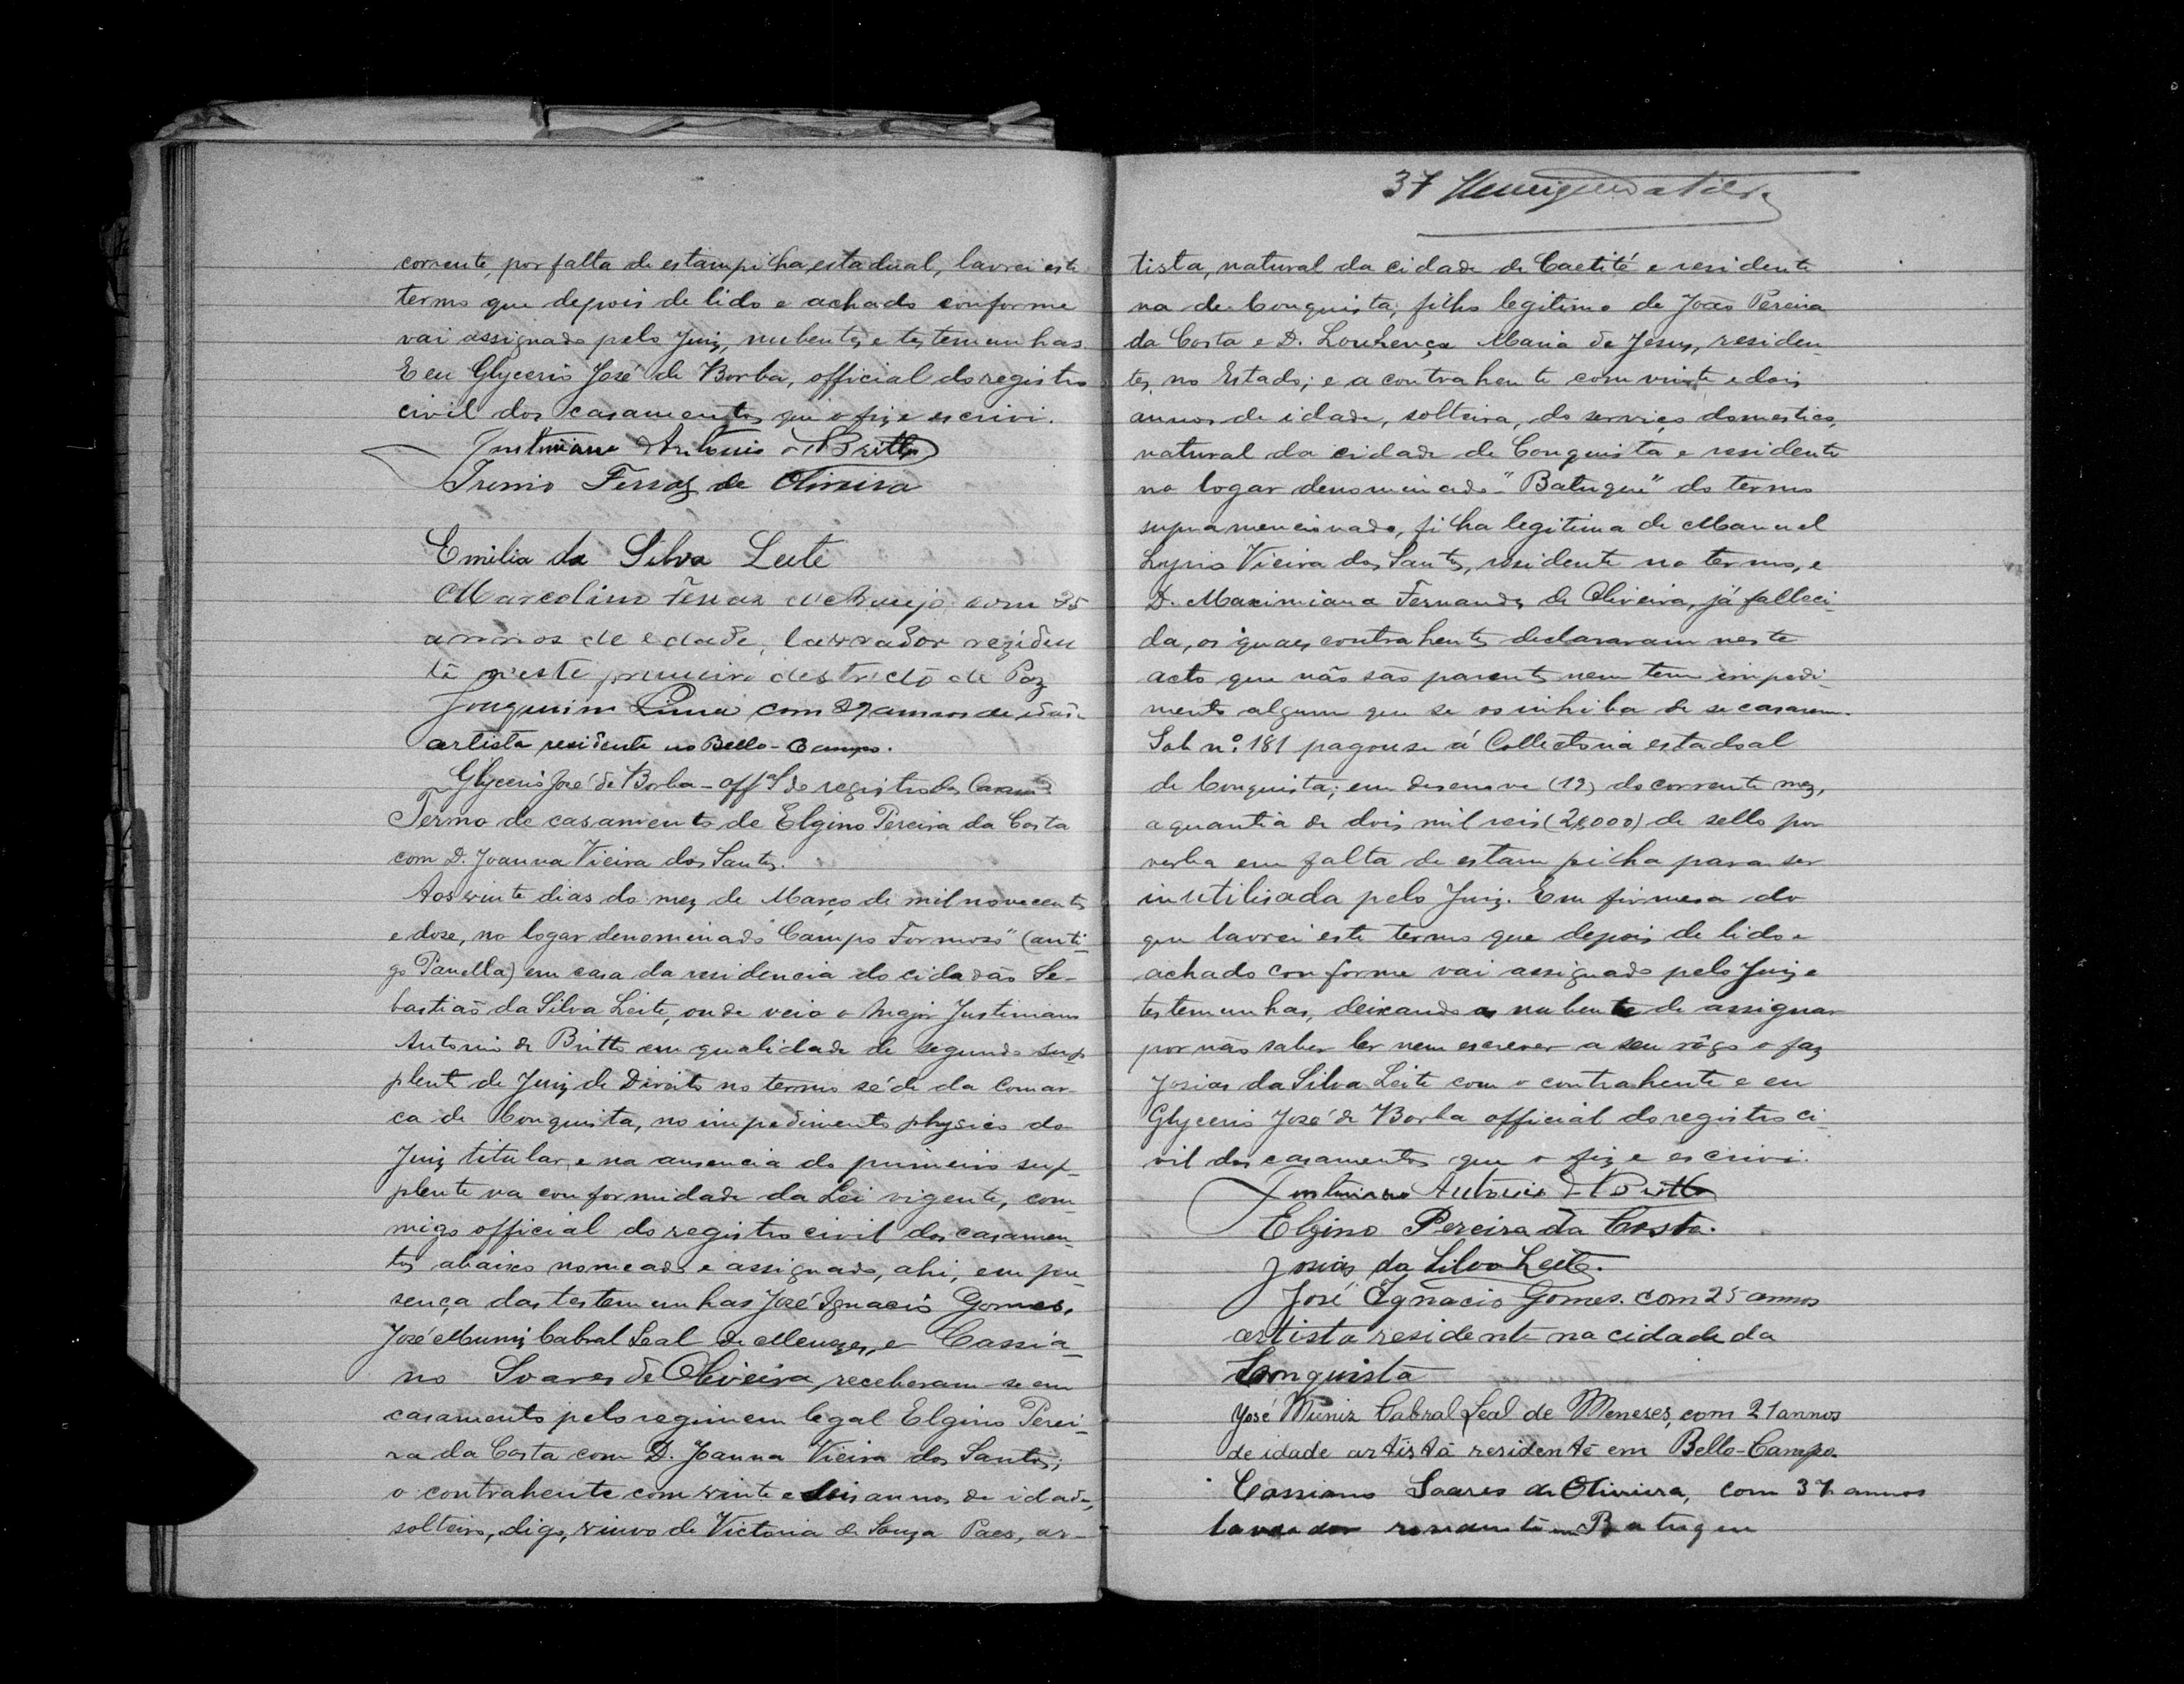 corrente, por falta de estampilha estadual, lavrei este
termo que depois de lido e achado conforme
vai assignado pelo Juiz, nubentes e testemunhas.
E eu Glycerio José de Borba, official do registro
civil dos casamentos que o fiz e escrivi.
Justiniano Antonio de Britto
Irenio Ferraz de Oliveira
Emilia da Silva Leite
Marcolino Ferraz de Araujo com 35
annos de edade, lavrador residen
te n'este primeiro destricto de Paz
Joaquim Lima com 29 annos de idade
artista residente no Bello-Campo.
Glycerio José de Borba - offal do registro dos Casamtos
Termo de casamento de Elgino Pereira da Costa
com D. Joanna Vieira dos Santos.
Aos vinte dias do mez de Março de mil novecentos
e dose, no logar denominado "Campo Formoso" (anti-
go Panella) em casa da residencia do cidadão Se-
bastião da Silva Leite, onde veio o Major Justiniano
Antonio de Britto em qualidade de segundo sup-
plente de Juiz de Direito no termo séde da Comar-
ca de Conquista, no impedimento physico do
Juiz titular, e na ausencia do primeiro sup-
plente na conformidade da Lei vigente, com-
migo official do registro civil dos casamen-
tos abaixo nomeado e assignado, ahi, em pre-
sença das testemunhas José Ignacio Gomes,
José Muniz Cabral Leal de Menezes, e Cassia-
no Soares de Oliveira, receberam-se em
casamento pelo regimem legal Elgino Perei-
ra da Costa com D. Joanna Vieira dos Santos;
o contrahente com vinte e seis annos de idade,
solteiro, digo, viuvo de Victoria de Souza Paes, ar-
37
tista, natural da cidade de Caetité e residente
na de Conquista, filho legitimo de João Pereira
da Costa e D. Lourença Maria de Jesus, residen-
tes no Estado; e a contrahente com vinte e dois
annos de idade, solteira, do serviço domestico,
natural da cidade de Conquista e residente
no logar denominado "Batuque" do termo
supramencionado, filha legitima de Manuel
Vieira dos Santos, residente no termo, e
D. Maximiana Fernandes de Oliveira, já falleci-
da, os quaes contrahentes declararam neste
acto que não são parentes nem tem impedi-
mento algum que se os inhiba de se casarem.
Sob nº. 181 pagou-se á Collectoria estadoal
de Conquista, em desenove (19) do corrente mez,
a quantia de dois mil reis (2$000) de sello por
verba em falta de estampilha para ser
inutilisada pelo Juiz. Em firmesa do
que lavrei este termo que depois de lido e
achado conforme vai assignado pelo Juiz e
testemunhas, deixando a nubente de assignar
por não saber ler nem escrever a seu rôgo o faz
Josias da Silva Leite com o contrahente e eu
Glycerio José de Borba official do registro ci-
vil dos casamentos que o fiz e escrivi.
Justiniano Antonio de Britto
Elgino Pereira da Costa.
Josias da Silva Leite.
José Ignacio Gomes. com 25 annos
artista residente na cidade da
Conquista
José Muniz Cabral Leal de Meneses, com 21 annos
de idade artista residente em Bello-Campo.
Cassiano Soares de Oliveira, com 37 annos
lavrador em Batuque